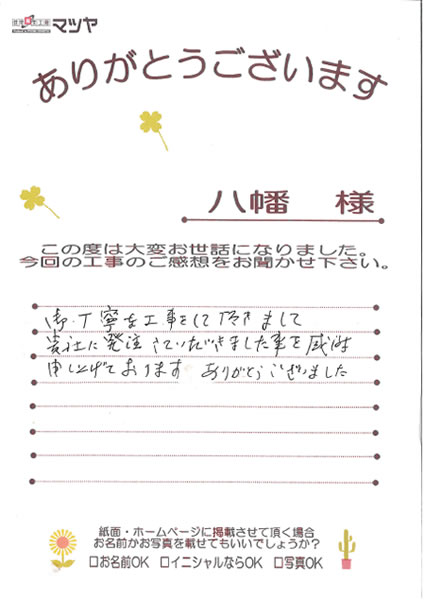 マツヤ
ありがとうございます
八幡 様
この度は大変お世話になりました。
今回の工事のご感想をお聞かせ下さい。
御丁寧な工事をして頂きまして
貴社に発注させていただきました事を感謝
申し上げております ありがとうございました
紙面・ホームページに掲載させて頂く場合
お名前かお写真を載せてもいいでしょうか?
□お名前OK □イニシャルならOK □写真OK